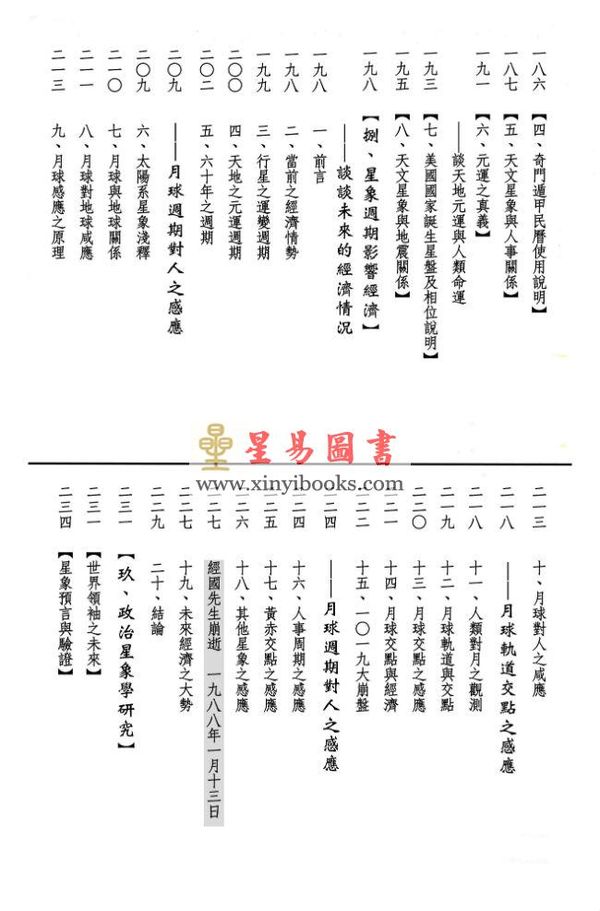 一八六 【四、奇門遁甲民曆使用說明】
一八七 【五、天文星象與人事關係】
一九一 【六、元運之真義】
——談天地元運與人類命運
一九三 【七、美國國家誕生星盤及相位說明】
一九五 【八、天文星象與地震關係】
一九八 【捌、星象週期影響經濟】
——談談未來的經濟情況
一九八 一、前言
一九八 二、當前之經濟情勢
一九九 三、行星之運變週期
二〇〇 四、天地之元運週期
二〇二 五、六十年之週期
二〇九 ——月球週期對人之感應
二〇九 六、太陽系星象淺釋
二一〇 七、月球與地球關係
二一一 八、月球對地球咸應
二一三 九、月球感應之原理
星易圖書
www.xinyibooks.com
二一三 十、月球對人之咸應
二一八 ——月球軌道交點之感應
二一八 十一、人類對月之觀測
二一九 十二、月球軌道與交點
二二〇 十三、月球交點之感應
二二一 十四、月球交點與經濟
二二二 十五、一〇一九大崩盤
二二四 ——月球週期對人之感應
二二四 十六、人事周期之感應
二二五 十七、黃赤交點之感應
二二六 十八、其他星象之感應
二二七 經國先生崩逝 一九八八年一月十三日
二二七 十九、未來經濟之大勢
二二九 二十、結論
二三一 【玖、政治星象學研究】
二三一 【世界領袖之未來】
二三四 【星象預言與驗證】